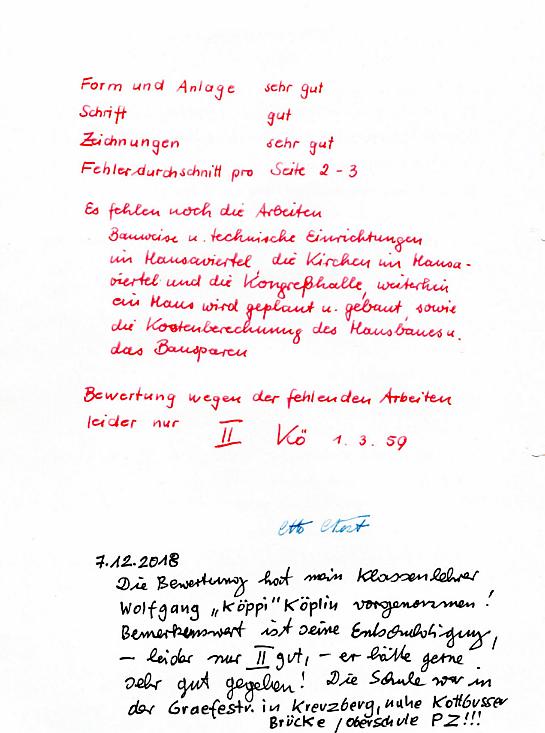 Form und Anlage sehr gut
Schrift gut
Zeichnungen sehr gut
Fehlerdurchschnitt pro Seite 2 - 3
Es fehlen noch die Arbeiten
Bauweise u. technische Einrichtungen
im Hansaviertel, die Kirchen im Hansa-
viertel und die Kongreßhalle, weiterhin
ein Haus wird geplant u. gebaut, sowie
die Kostenberechnung des Hausbaues u.
das Bausparen
Bewertung wegen der fehlenden Arbeiten
leider nur II Kö 1. 3. 59
Otto
7.12.2018
Die Bewertung hat mein Klassenlehrer
Wolfgang „Köppi" Köplin vorgenommen!
Bemerkenswert ist seine Entschuldigung,
– leider nur II gut, – er hätte gerne
sehr gut gegeben! Die Schule war in
der Graefestr. in Kreuzberg, nahe Kottbusser
Brücke / Oberschule PZ!!!